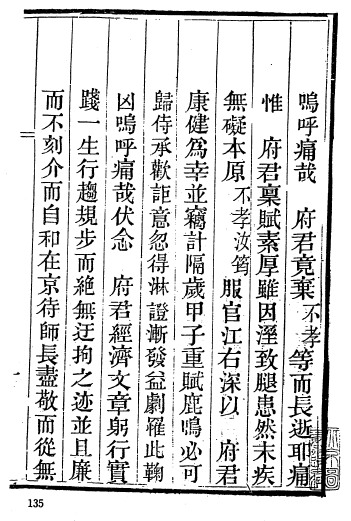 嗚呼痛哉　府君竟棄不孝等而長逝耶痛
惟　府君稟賦素厚雖因溼致腿患然末疾
無礙本原不孝汝筠服官江右深以　府君
康健爲幸並竊計隔歲甲子重賦鹿鳴必可
歸侍承歡詎意忽得淋證漸發益劇罹此鞠
凶嗚呼痛哉伏念　府君經濟文章躬行實
踐一生行趨規步而絕無迂拘之迹並且廉
而不刻介而自和在京待師長盡敬而從無
一
135